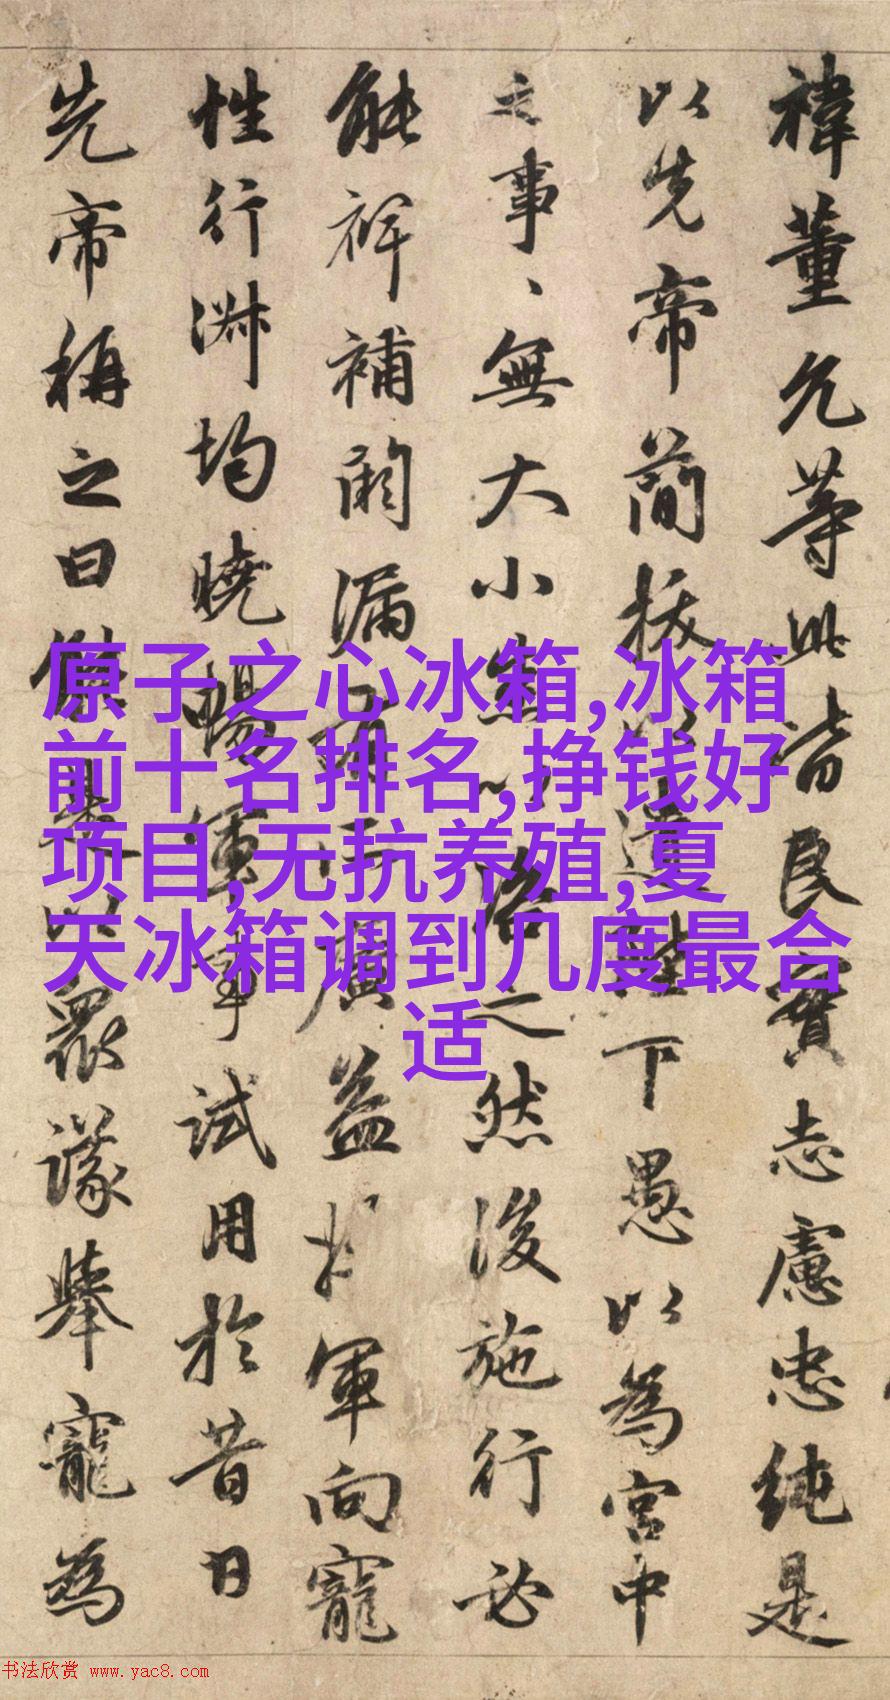 禕董允等此皆良實志慮忠純是
以先帝簡拔以遺陛下愚以為宮中
之事、無大小悉以咨之然後施行必
能裨補闕漏有所廣益將軍向寵
性行淑均曉暢軍事試用於昔日
先帝稱之曰以眾議舉寵為
原子之心冰箱,冰箱
前十名排名,挣钱好
项目,无抗养殖,夏
天冰箱调到几度最合
适
书法欣赏 www.yac8.com